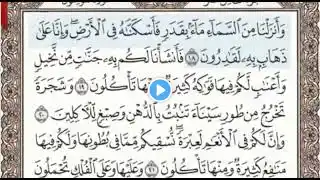 وَأَنزَلْنَا مِنَ السَّمَاءِ مَاءً بِقَدَرٍ فَأَسْكَنَّاهُ فِي الْأَرْضِ وَإِنَّا عَلَىٰ
ذَهَابٍ بِهِ لَقَادِرُونَ ١٨ فَأَنشَأْنَا لَكُم بِهِ جَنَّاتٍ مِّن نَّخِيلٍ
وَأَعْنَابٍ لَّكُمْ فِيهَا فَوَاكِهُ كَثِيرَةٌ وَمِنْهَا تَأْكُلُونَ ١٩ وَشَجَرَةً
تَخْرُجُ مِن طُورِ سَيْنَاءَ تَنبُتُ بِالدُّهْنِ وَصِبْغٍ لِّلْآكِلِينَ ٢٠
وَإِنَّ لَكُمْ فِي الْأَنْعَامِ لَعِبْرَةً نُّسْقِيكُم مِّمَّا فِي بُطُونِهَا وَلَكُمْ فِيهَا
مَنَافِعُ كَثِيرَةٌ وَمِنْهَا تَأْكُلُونَ ٢١ وَعَلَيْهَا وَعَلَى الْفُلْكِ تُحْمَلُونَ